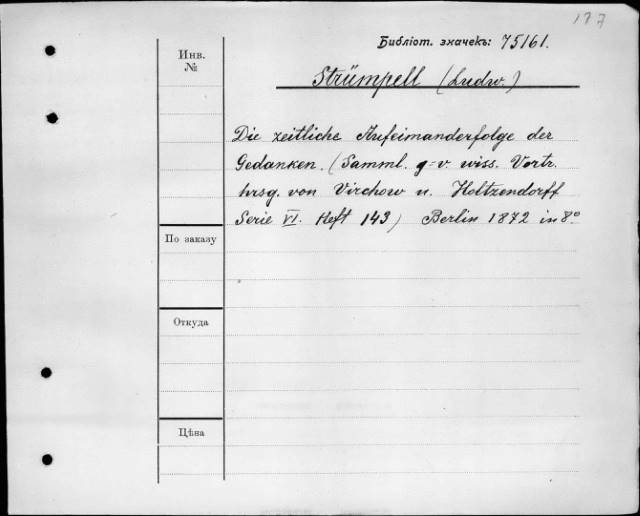 177
Библіот. значекъ: 75161.
Инв.
№
Strümpell (Ludw.)
Die zeitliche Aufeinanderfolge der
Gedanken. (Samml. g-v wiss. Vortr.
hrsg. von Virchow u. Holtzendorff
Serie VI. Heft 143) Berlin 1872 in 8°
По заказу
Откуда
Цѣна